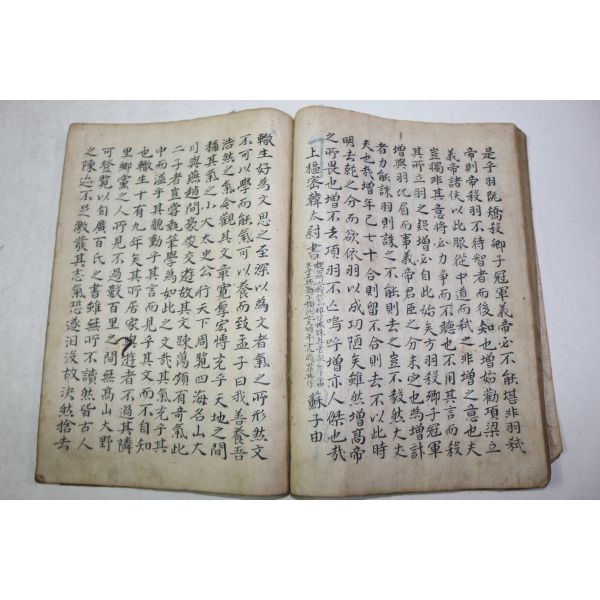 是乎羽既矯殺卿子冠軍義帝必不能堪非羽弑
帝則帝殺羽不待智者而後知也增始勸項梁立
義帝諸侯以此服從中道而弑之非增之意也夫
豈獨非其意將必力争而不聽也不用其言而殺
其所立羽之疑增必自此始矣方羽殺卿子冠軍
增與羽比肩而事義帝君臣之分未定也為增計
者力能誅羽則誅之不能則去之豈不毅然大丈
夫也哉增年已七十合則留不合則去不以此時
明去就之分而欲依羽以成功陋矣雖然增高帝
之所畏也增不去項羽不亡嗚呼增亦人傑也哉
上樞密韓太尉書 蘇子由
轍生好為文思之至深以為文者氣之所形然文
不可以學而能氣可以養而致孟子曰我善養吾
浩然之氣今觀其文章寬厚宏博充乎天地之間
稱其氣之小大太史公行天下周覽四海名山大
川與燕趙間豪俊交遊故其文疎蕩頗有奇氣此
二子者豈嘗執筆學為如此之文哉其氣充乎其
中而溢乎其貌動乎其言而見乎其文而不自知
也轍生十有九年矣其所居家遊者不過其隣
里鄉黨之人所見不過數百里之間無高山大野
可登覽以自廣百氏之書雖無所不讀然皆古人
之陳迹不足激發其志氣恐遂汨沒故決然捨去